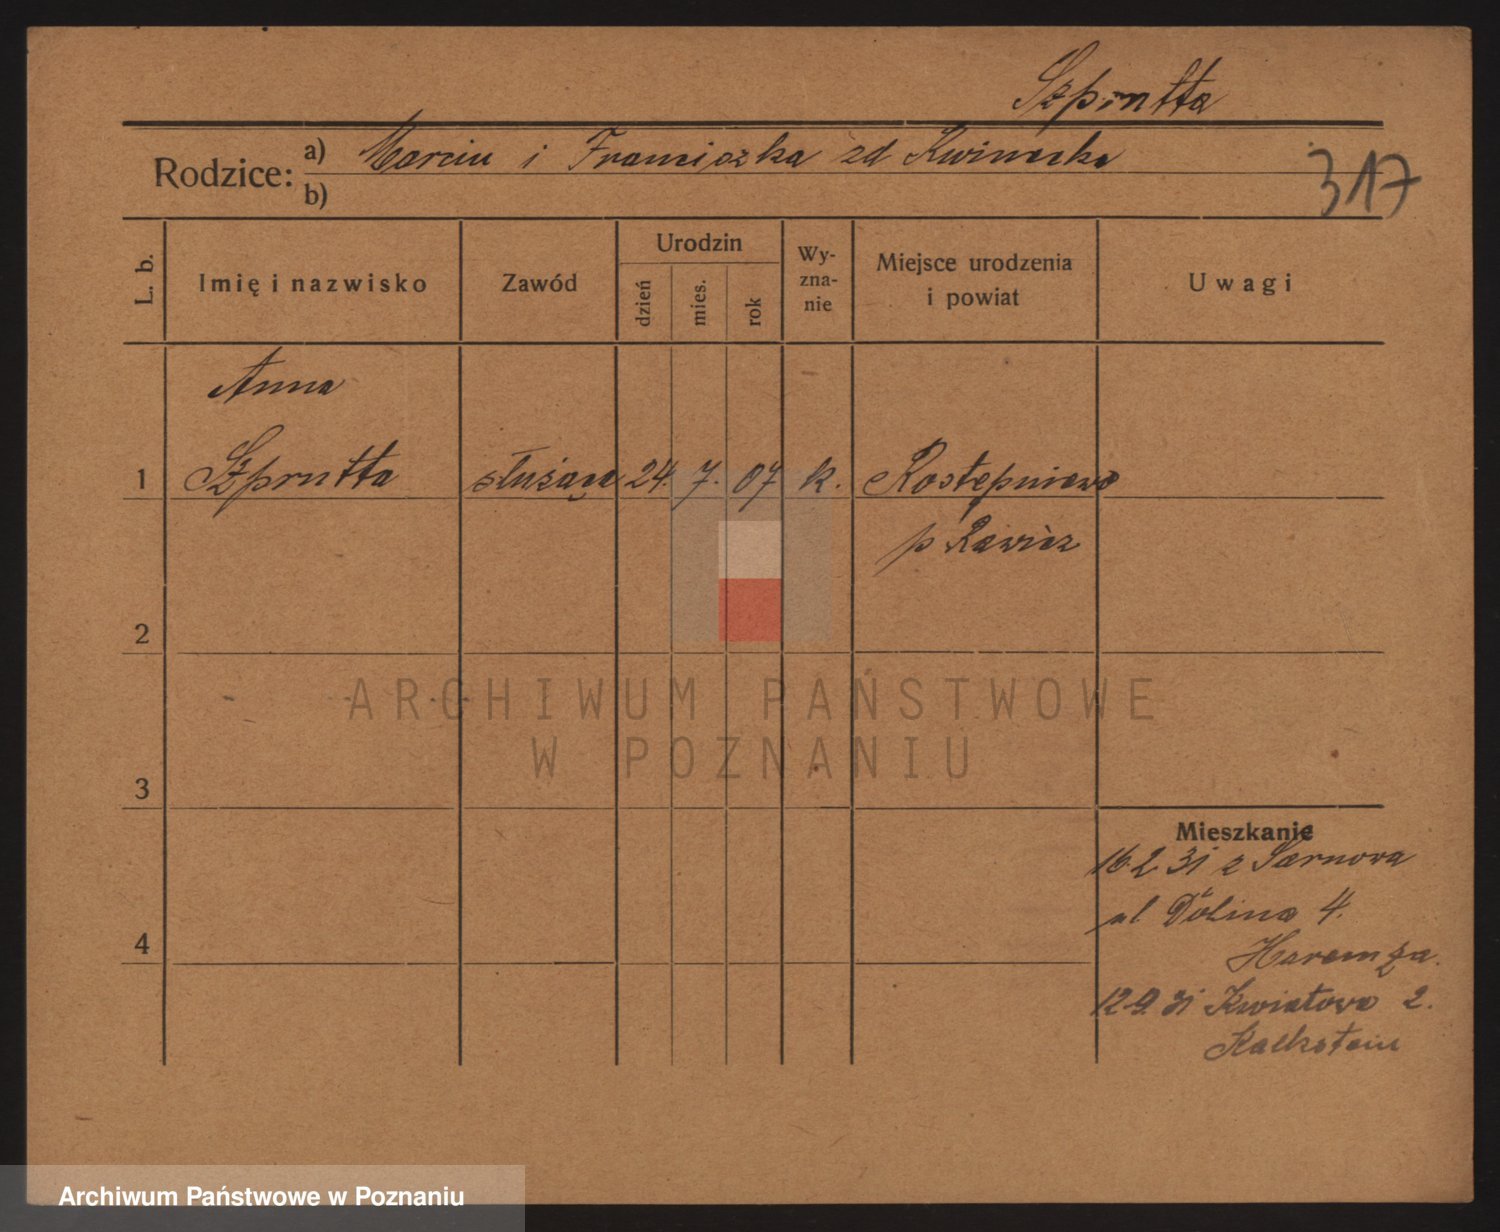 Szprutta
Rodzice: a) Marcin i Franciszka zd Kwinecka
b)
317
L. b.
Imię i nazwisko
Zawód
Urodzin
dzień
mies.
rok
Wy-
zna-
nie
Miejsce urodzenia
i powiat
Uwagi
Anna
1 Szprutta służąca 24. 7. 07 k. Rostępniewo
p Rawicz
2
3
4
Mieszkanie
16 2 31 z Sarnowa
ul Dolina 4.
12.9.31 Kwiatowa 2.
Kalkstein
ARCHIWUM PAŃSTWOWE
W POZNANIU
Archiwum Państwowe w Poznaniu